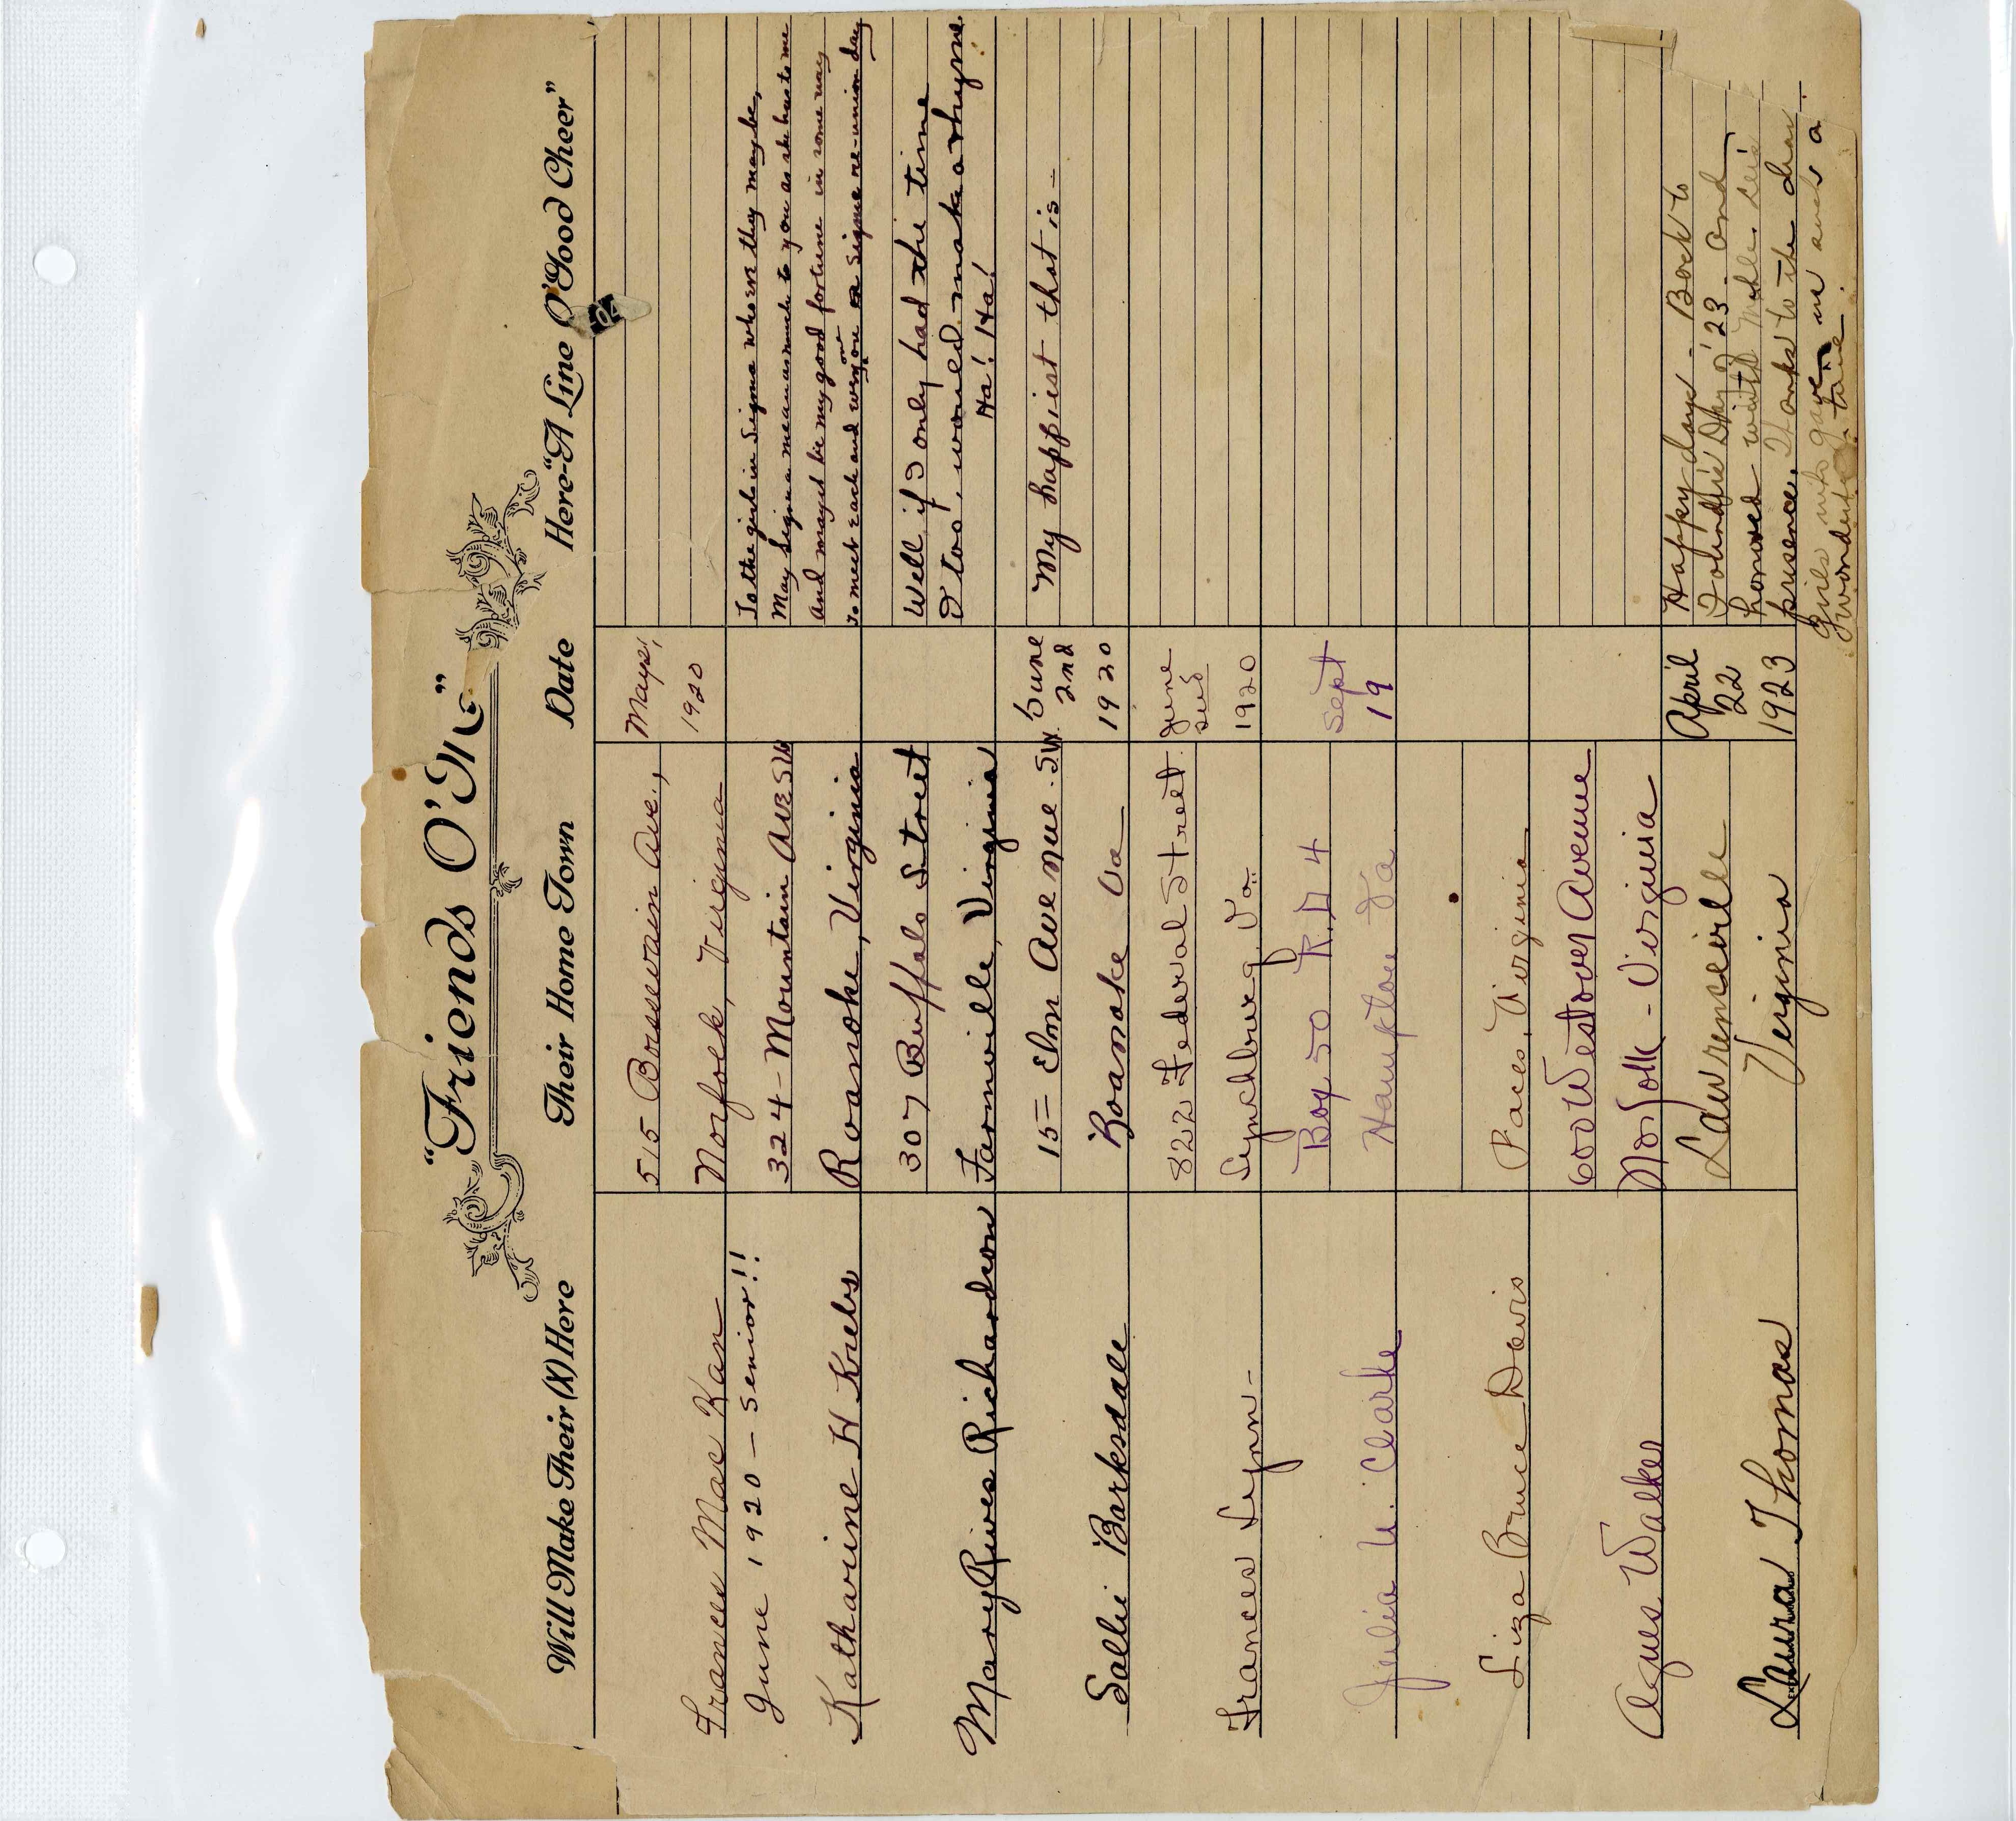 "Friends O'Mine"
Will Make Their (X) Here
Their Home Town
Date
Here-"A Line O' Good Cheer"
Frances Mae Kan
515 Boissevain Ave.,
Norfolk, Virginia
May,
1920
June 1920 - Senior!!
Katharine H Krebs
324- Mountain Ave SW
Roanoke, Virginia
To the girls in Sigma who ere they may be,
May Sigma mean as much to you as she has to me
And may it be my good fortune in some way
To meet each and every one on Sigma re-union day
Mary Rives Richardson
307 Buffalo Street
Farmville, Virginia
Well if I only had the time
I too, would make a rhyme.
Ha! Ha!
Sallie Barksdale
15= Elm Avenue. S.W.
Roanoke Va
June
2nd
1920
My happiest that is -
Frances Lynn-
822 Federal Street
Lynchburg, Va.
June
2nd
1920
Julia U. Clarke
Box 50 R.D 4
Hampton Va
Sept
19
Liza Bruce Davis
Paces, Virginia
Agnes Walker
600 Westover Avenue
Norfolk - Virginia
Laura Thomas
Lawrenceville
Virginia
April
22
1923
Happy days - Back to
Founders Day of '23 - and
honored with Mable. Lee's
presence, Thanks to the dear
girls who gave me such a
wonderful time.